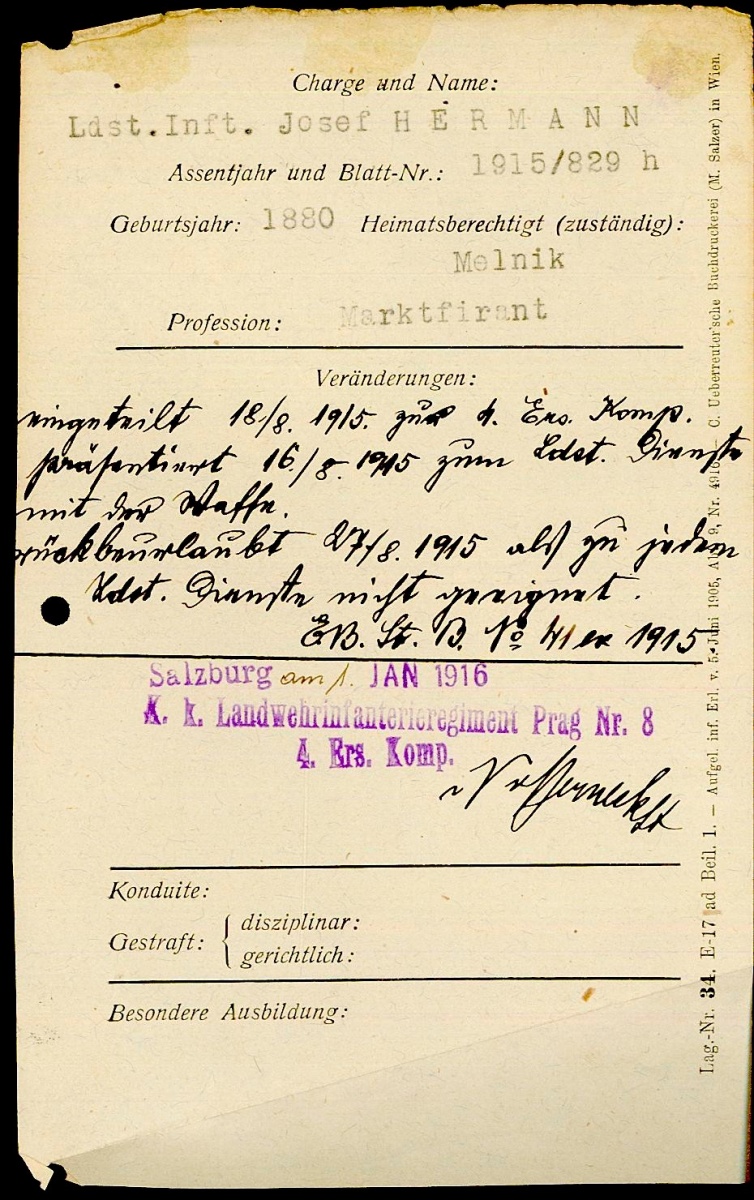 Charge und Name:
Ldst.Inft. Josef H E R M A N N
Assentjahr und Blatt-Nr.: 1915/829 h
Geburtsjahr: 1880 Heimatsberechtigt (zuständig):
Melnik
Profession: Marktfirant
Veränderungen:
eingeteilt 18/8. 1915. zur 4. Ers. Komp.
präsentiert 16./8. 1915 zum Ldst. Dienste
mit der Waffe.
rückbeurlaubt 27/8. 1915 als zu jedem
Ldst. Dienste nicht geeignet.
EB. St. B. No 41 ex 1915
Salzburg am 1. JAN 1916
K. k. Landwehrinfanterieregiment Prag Nr. 8
4. Ers. Komp.
Konduite:
Gestraft: { disziplinar:
gerichtlich:
Besondere Ausbildung:
Lag.-Nr. 34. E-17 ad Beil. 1. — Aufgel. inf. Erl. v. 5. Juni 1905, Abt. 9, Nr. 4916. C. Ueberreuter'sche Buchdruckerei (M. Salzer) in Wien.